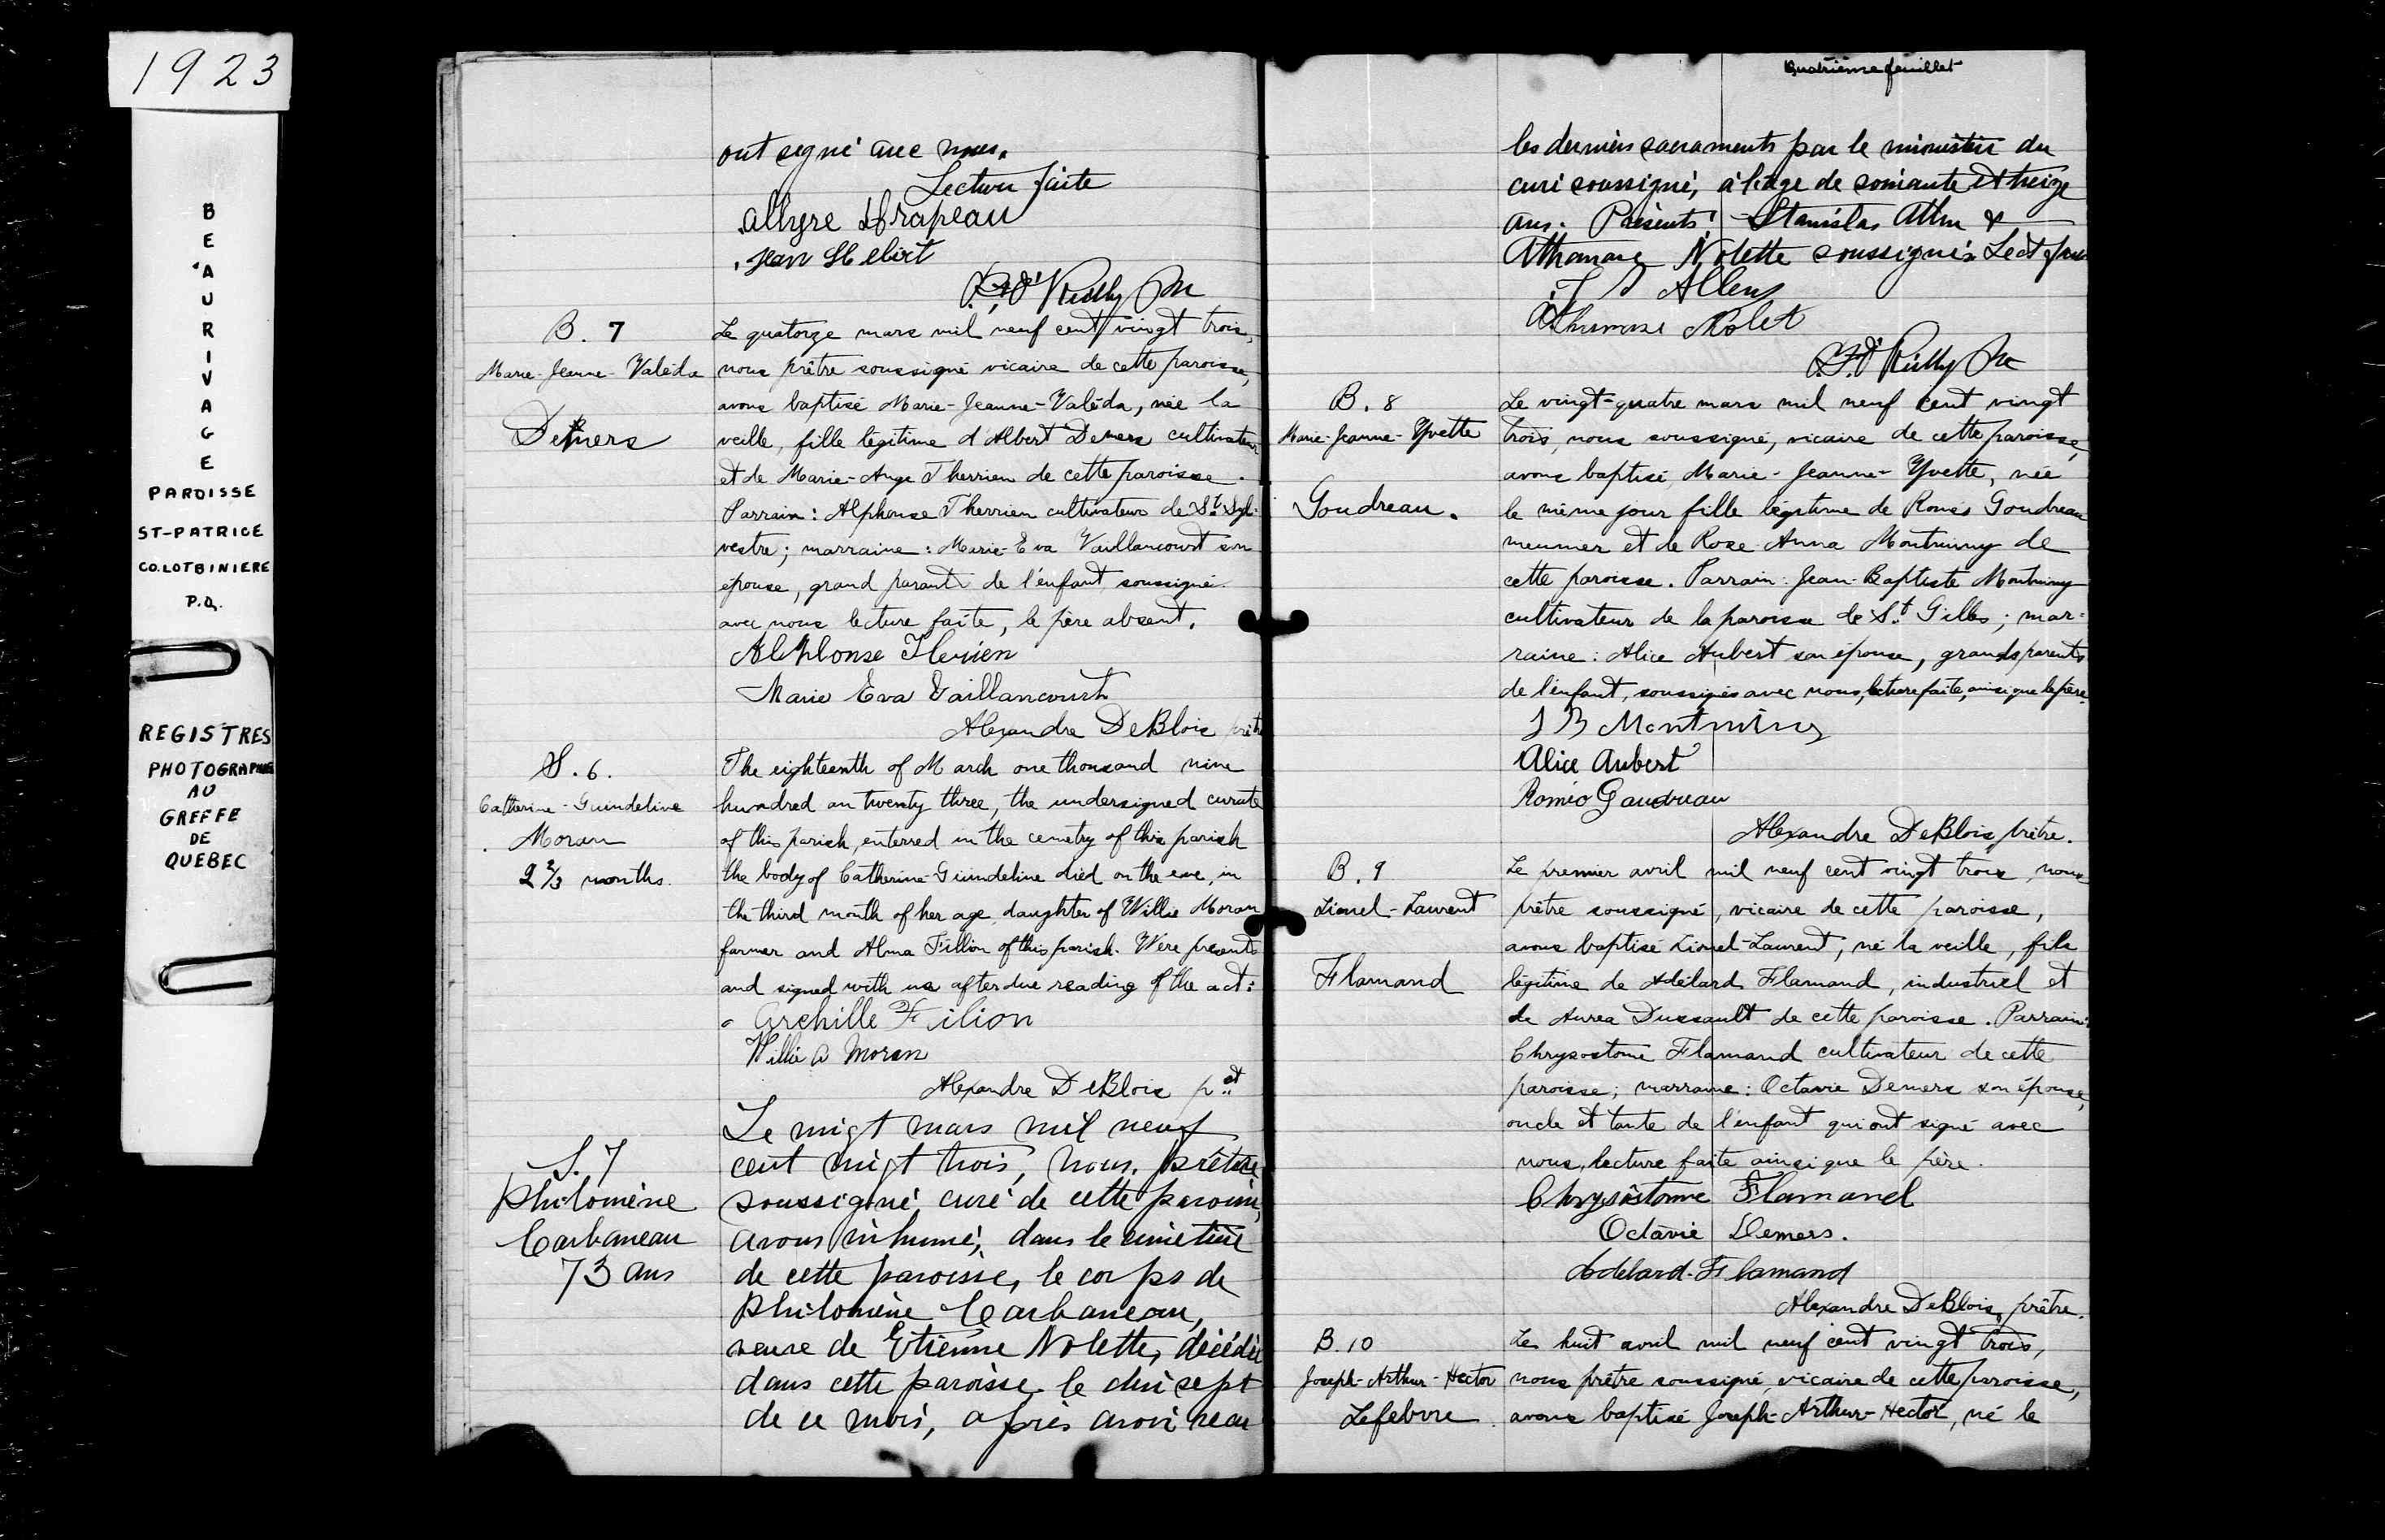 1923
BEAURIVAGE
PAROISSE
ST-PATRICE
CO.LOTBINIERE
P.Q.
REGISTRES
PHOTOGRAPHIES
AU
GREFFE
DE
QUEBEC
ont signé avec nous.
Lecture faite
Allyre Drapeau
Jean Hebert
B. 7
Marie-Jeanne-Valéda
Demers
Le quatorze mars mil neuf cent vingt trois,
nous prêtre soussigné vicaire de cette paroisse,
avons baptisé Marie-Jeanne-Valéda, née la
veille, fille légitime d'Albert Demers cultivateur
et de Marie-Ange Therrien de cette paroisse.
Parrain: Alphonse Therrien cultivateur de St. Syl-
vestre; marraine: Marie-Eva Vaillancourt son
épouse, grand parents de l'enfant soussignés
avec nous lecture faite, le père absent.
Alphonse Therien
Marie Eva Vaillancourt
Alexandre DeBlois prêtre
S. 6.
Catherine-Guindeline
Moran
2 2/3 months.
The eighteenth of March one thousand nine
hundred an twenty three, the undersigned curate
of this parish, enterred in the cemetry of this parish
the body of Catherine-Guindeline died on the eve, in
the third month of her age, daughter of Willie Moran
farmer and Alma Fillion of this parish. Were presents
and signed with us after due reading of the act:
Archille Filion
Willie A Moran
Alexandre DeBlois pst
S. 7
Philomène
Carbaneau
73 ans
Le vingt mars mil neuf
cent vingt trois, nous, prêtre
soussigné, curé de cette paroisse,
avons inhumé, dans le cimetière
de cette paroisse, le corps de
Philomène Carbaneau,
veuve de Etienne Nolette, décédée
dans cette paroisse le dix sept
de ce mois, après avoir reçu
Quatrième feuillet
les derniers sacraments par le ministère du
curé soussigné, à l'âge de soixante et treize
ans. Présents: Stanislas Allen &
Athanase Nolette soussignés Lect faite
Allen
Athanase Nolet
B. 8
Marie-Jeanne-Yvette
Goudreau.
Le vingt-quatre mars mil neuf cent vingt
trois, nous soussigné, vicaire de cette paroisse,
avons baptisé Marie-Jeanne-Yvette, née
le même jour fille légitime de Roméo Goudreau
meunier et de Rose-Anna Montminy de
cette paroisse. Parrain: Jean-Baptiste Montminy
cultivateur de la paroisse de St. Gilles; mar-
raine: Alice Aubert son épouse, grands parents
de l'enfant, soussignés avec nous, lecture faite, ainsi que le père.
J B Montminy
Alice Aubert
Roméo Gaudreau
Alexandre DeBlois, prêtre.
B. 9
Lionel-Laurent
Flamand
Le premier avril mil neuf cent vingt trois, nous
prêtre soussigné, vicaire de cette paroisse,
avons baptisé Lionel-Laurent, né la veille, fils
légitime de Adélard Flamand, industriel et
de Aurea Dussault de cette paroisse. Parrain:
Chrysostome Flamand cultivateur de cette
paroisse; marraine: Octavie Demers son épouse,
oncle et tante de l'enfant qui ont signé avec
nous, lecture faite ainsi que le père.
Chrysostome Flamand
Octavie Demers.
Adelard Flamand
Alexandre DeBlois, prêtre.
B. 10
Joseph-Arthur-Hector
Lefebvre
Le huit avril mil neuf cent vingt trois,
nous prêtre soussigné, vicaire de cette paroisse,
avons baptisé Joseph-Arthur-Hector, né le